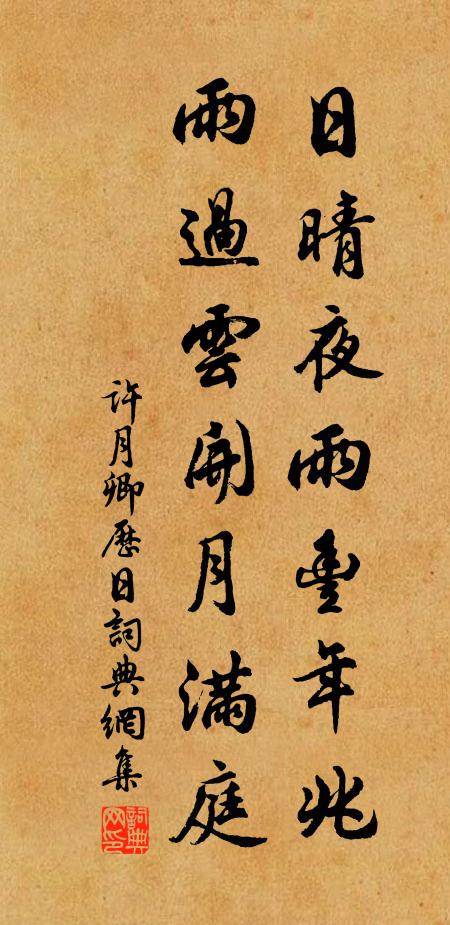 日晴夜雨豊年兆
雨過雲開月滿庭
許月卿歷日詞典網集
詞典網印